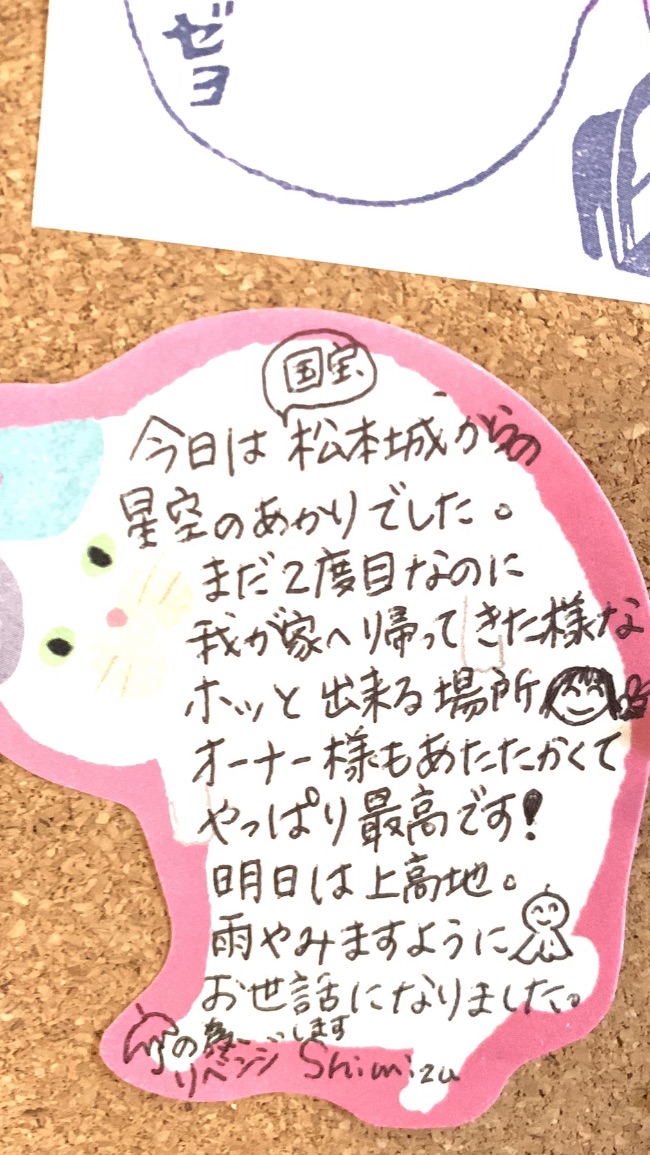 ゼヨ
国宝
今日は松本城からの
星空のあかりでした。
まだ2度目なのに
我が家へり帰ってきた様な
ホッと出来る場所
オーナー様もあたたかくて
やっぱり最高です!
明日は上高地。
雨やみますように
お世話になりました。
の為
リベンジします
Shimizu